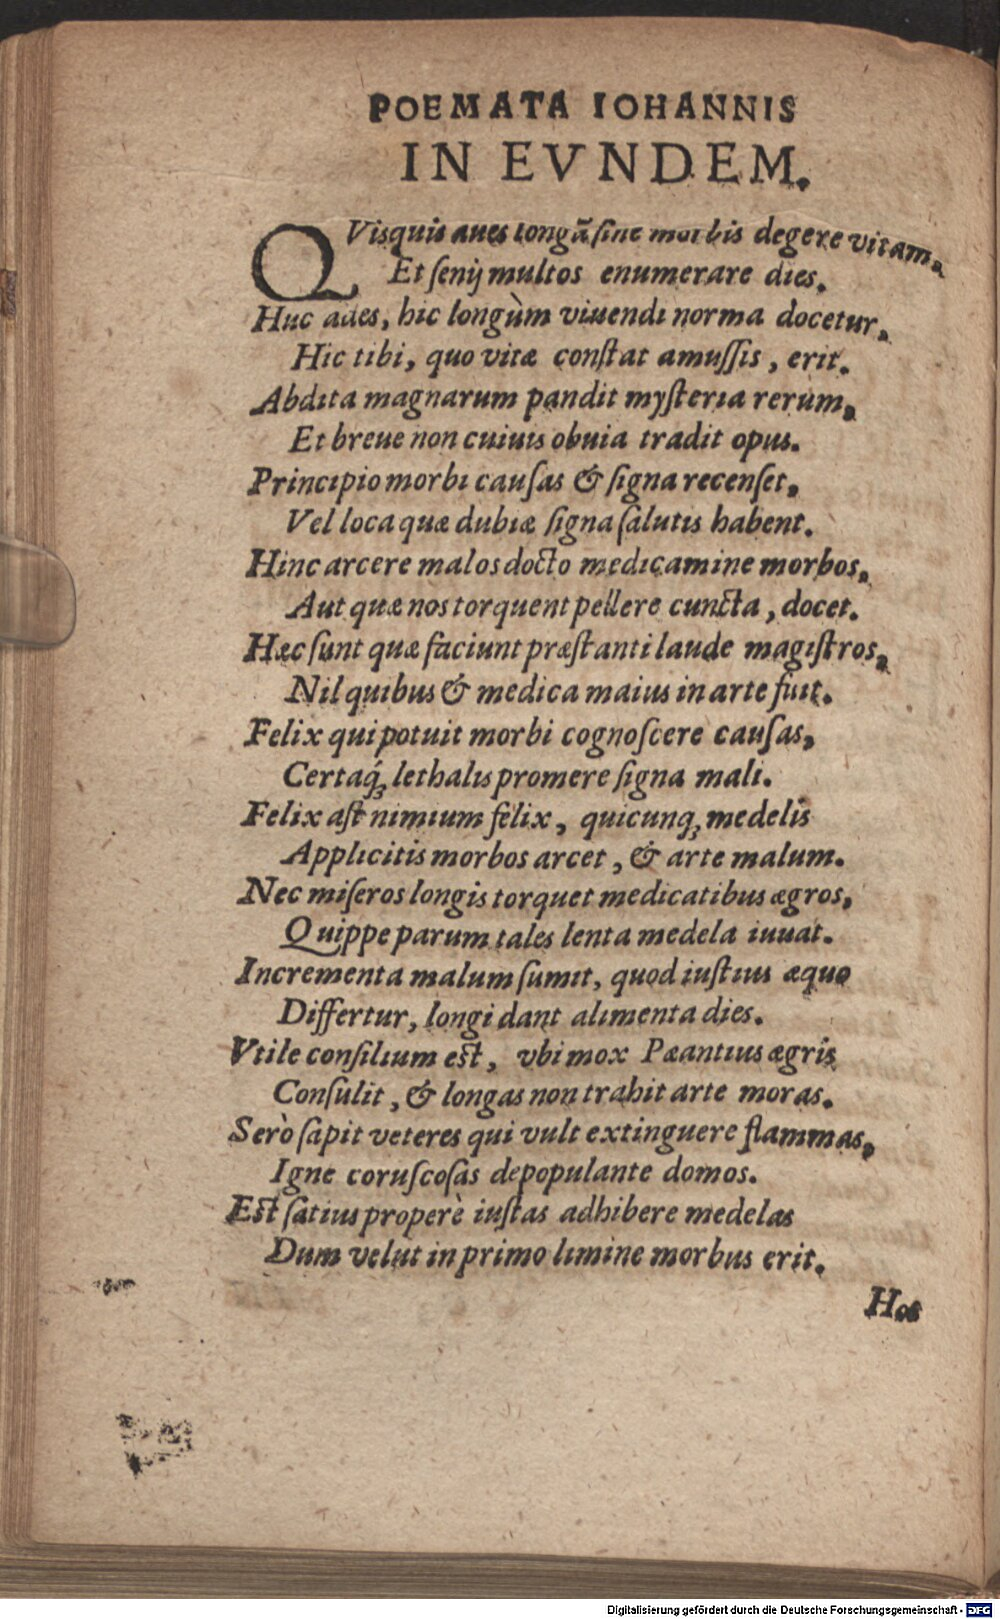 POEMATA IOHANNIS
IN EVNDEM.
QVisquis aues longã sine morbis degere vitam,
Et senij multos enumerare dies.
Huc ades, hic longùm viuendi norma docetur,
Hic tibi, quo vitæ constat amussis, erit.
Abdita magnarum pandit mysteria rerum,
Et breue non cuiuis obuia tradit opus.
Principio morbi causas & signa recenset,
Vel loca quæ dubiæ signa salutis habent.
Hinc arcere malos docto medicamine morbos,
Aut quæ nos torquent pellere cuncta, docet.
Hæc sunt quæ faciunt præstanti laude magistros,
Nil quibus & medica maius in arte fuit.
Felix qui potuit morbi cognoscere causas,
Certaq́; lethalis promere signa mali.
Felix ast nimium felix, quicunq; medelis
Applicitis morbos arcet, & arte malum.
Nec miseros longis torquet medicatibus ægros,
Quippe parum tales lenta medela iuuat.
Incrementa malum sumit, quod iustius æquo
Differtur, longi dant alimenta dies.
Vtile consilium est, vbi mox Pæantius ægris
Consulit, & longas non trahit arte moras.
Serò sapit veteres qui vult extinguere flammas,
Igne coruscosas depopulante domos.
Est satius properè iustas adhibere medelas
Dum velut in primo limine morbus erit.
Hos
Digitalisierung gefördert durch die Deutsche Forschungsgemeinschaft - DFG